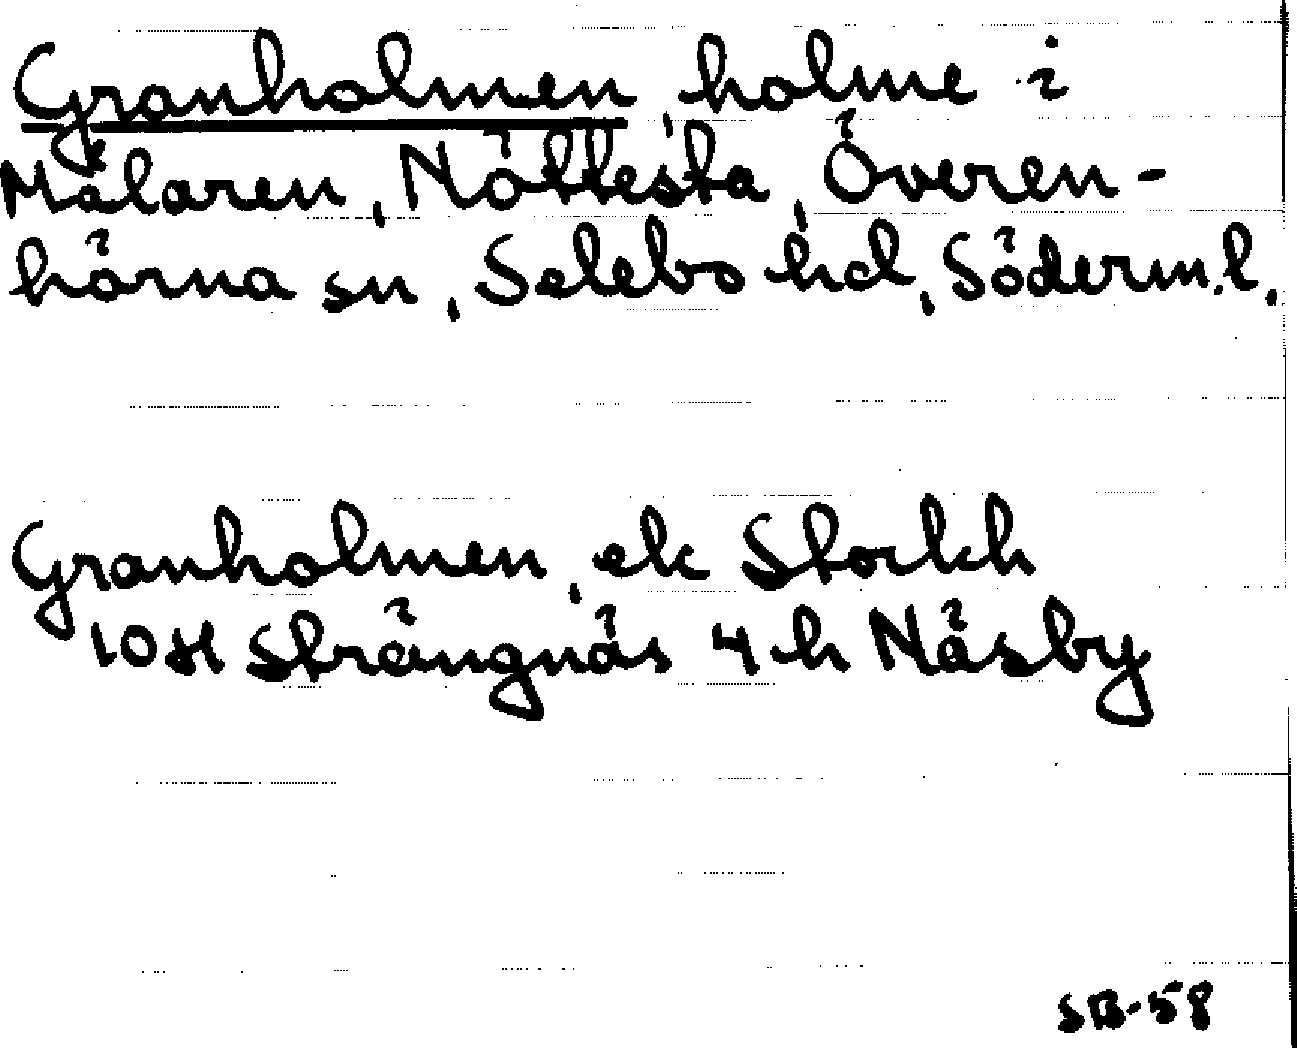 Granholmen, holme i
Mälaren, Nöttesta, Överen-
hörna sn, Selebo hd, Söderm.l.
Granholmen, ek Stockh
10SH Strängnäs 4h Näsby
SB-58